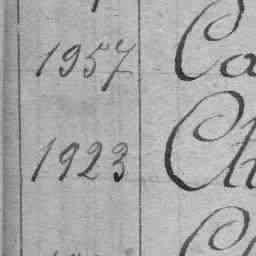 1957 Ca
1923 Ch